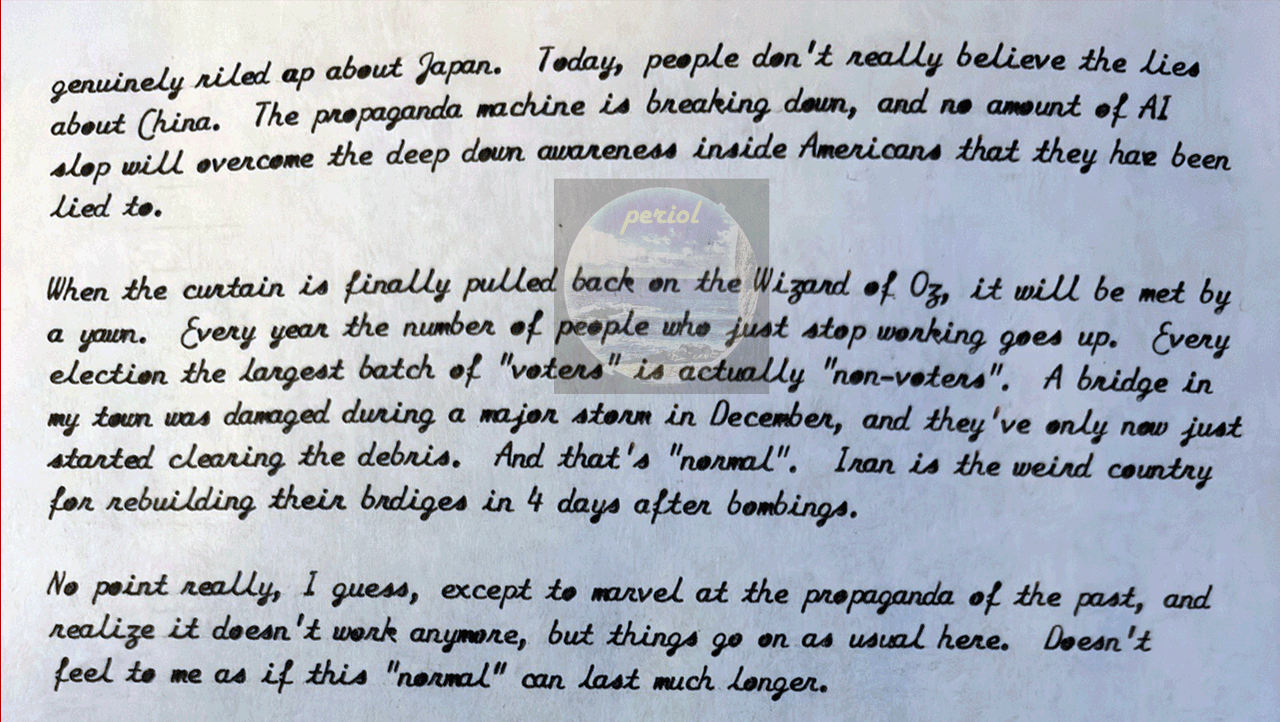 genuinely riled ap about Japan. Today, people don't really believe the lies
about China. The propaganda machine is breaking down, and no amount of AI
slop will overcome the deep down awareness inside Americans that they have been
lied to.
periol
When the curtain is finally pulled back on the Wizard of Oz, it will be met by
a yawn. Every year the number of people who just stop working goes up. Every
election the largest batch of "voters" is actually "non-voters". A bridge in
my town was damaged during a major storm in December, and they've only now just
started clearing the debris. And that's "normal". Iran is the weird country
for rebuilding their brdiges in 4 days after bombings.
No point really, I guess, except to marvel at the propaganda of the past, and
realize it doesn't work anymore, but things go on as usual here. Doesn't
feel to me as if this "normal" can last much longer.